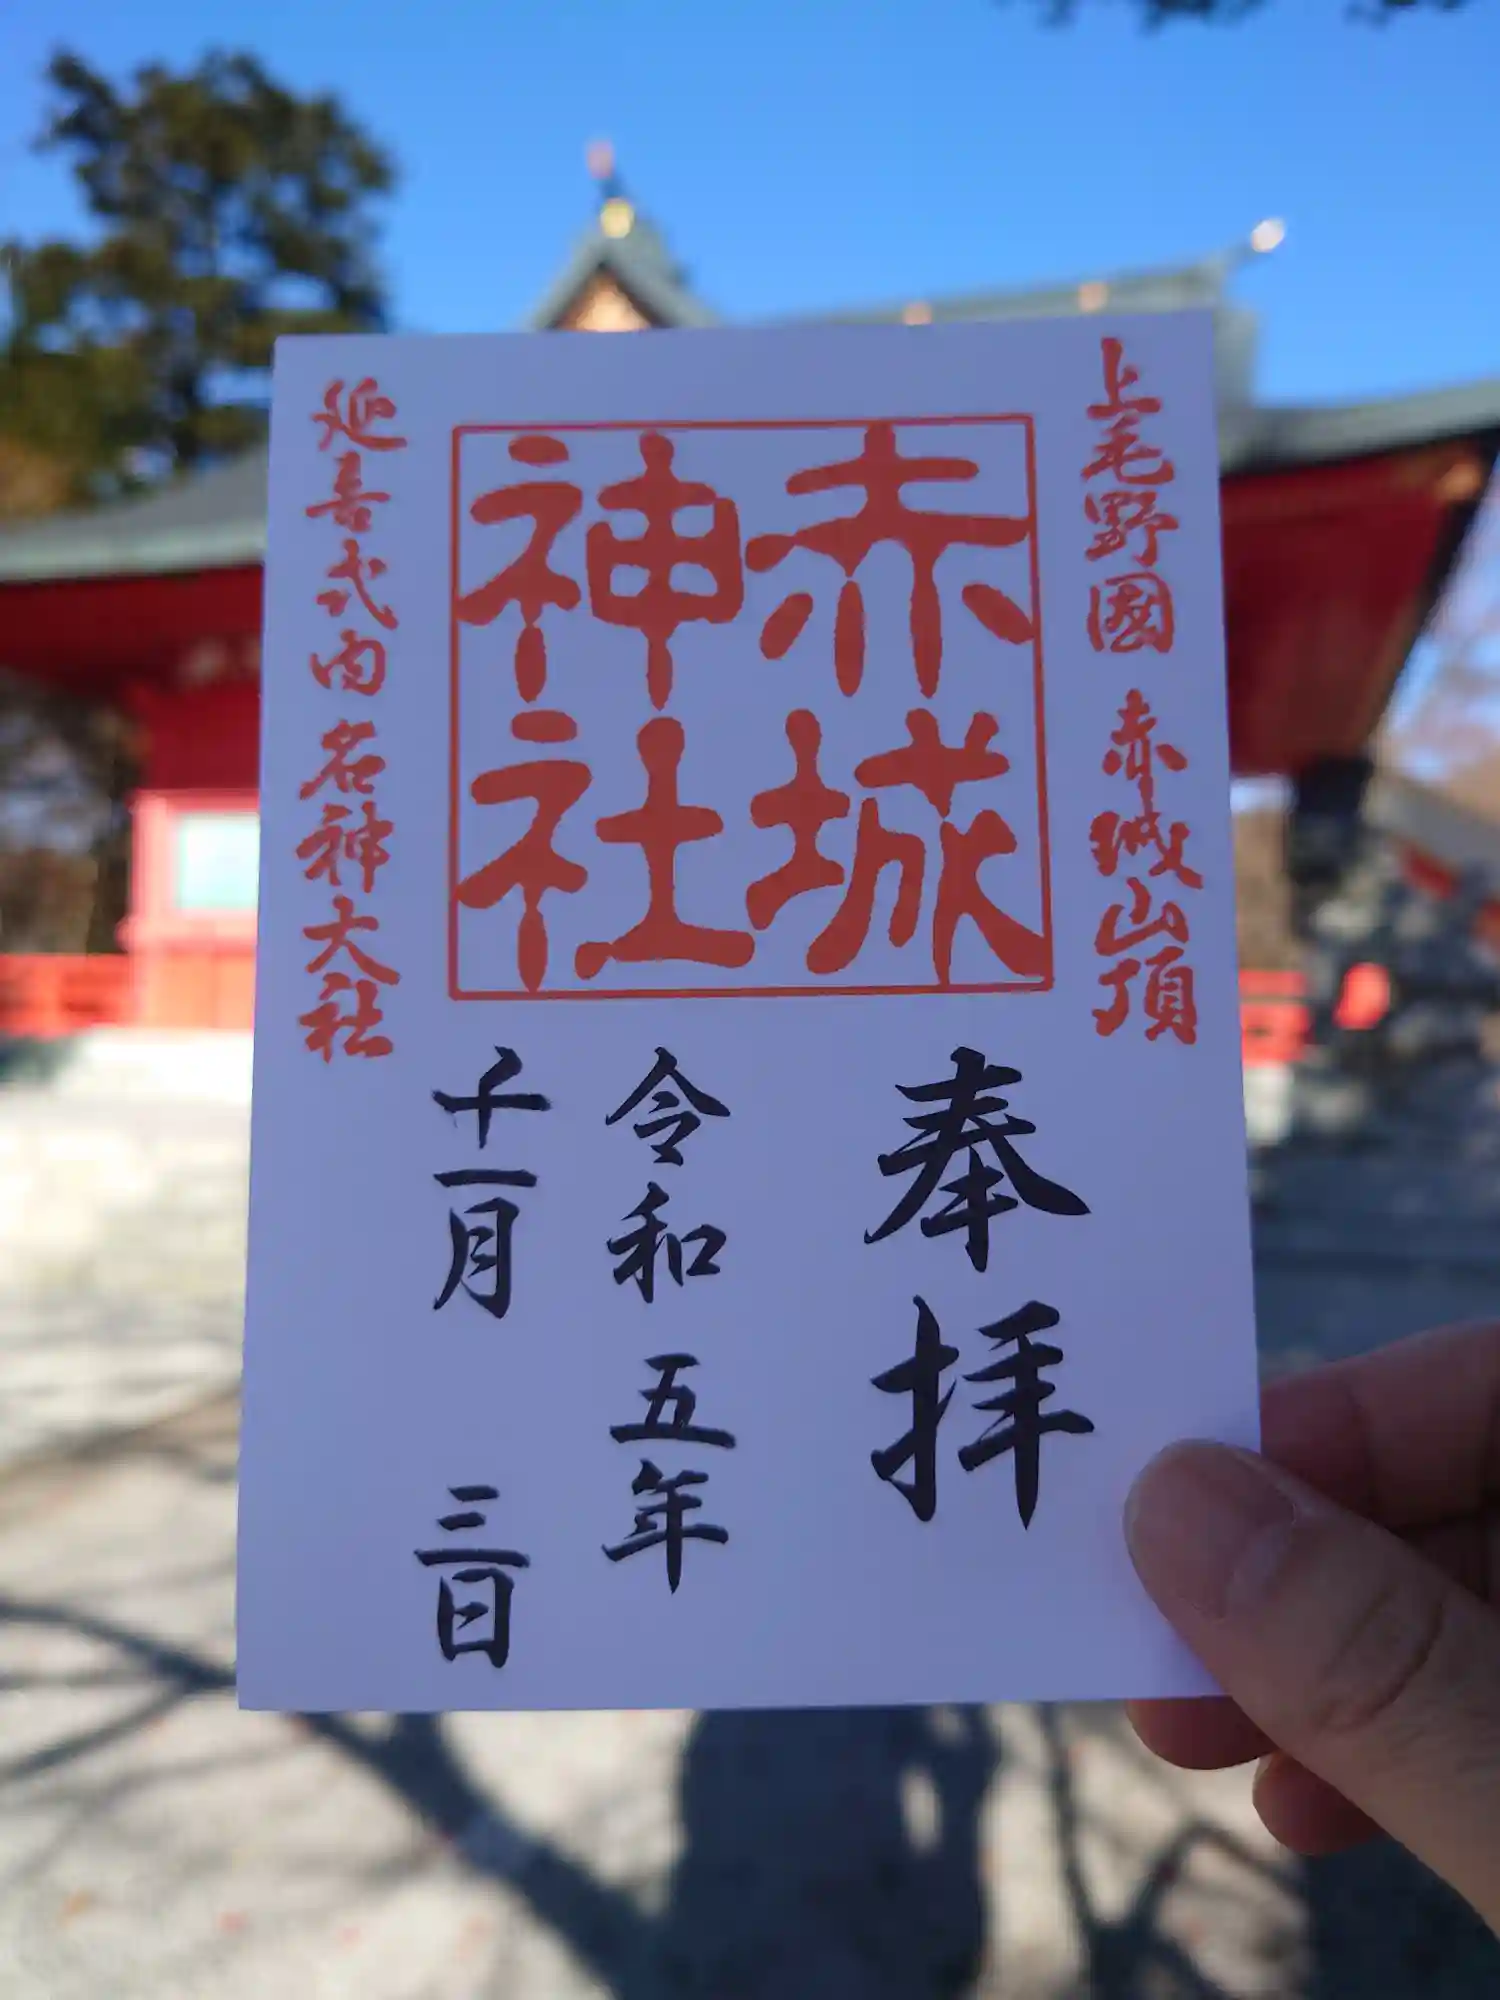 上毛野國 赤城山頂
赤城
神社
延喜式内 名神大社
奉拝
令和 五年
十一月 三日